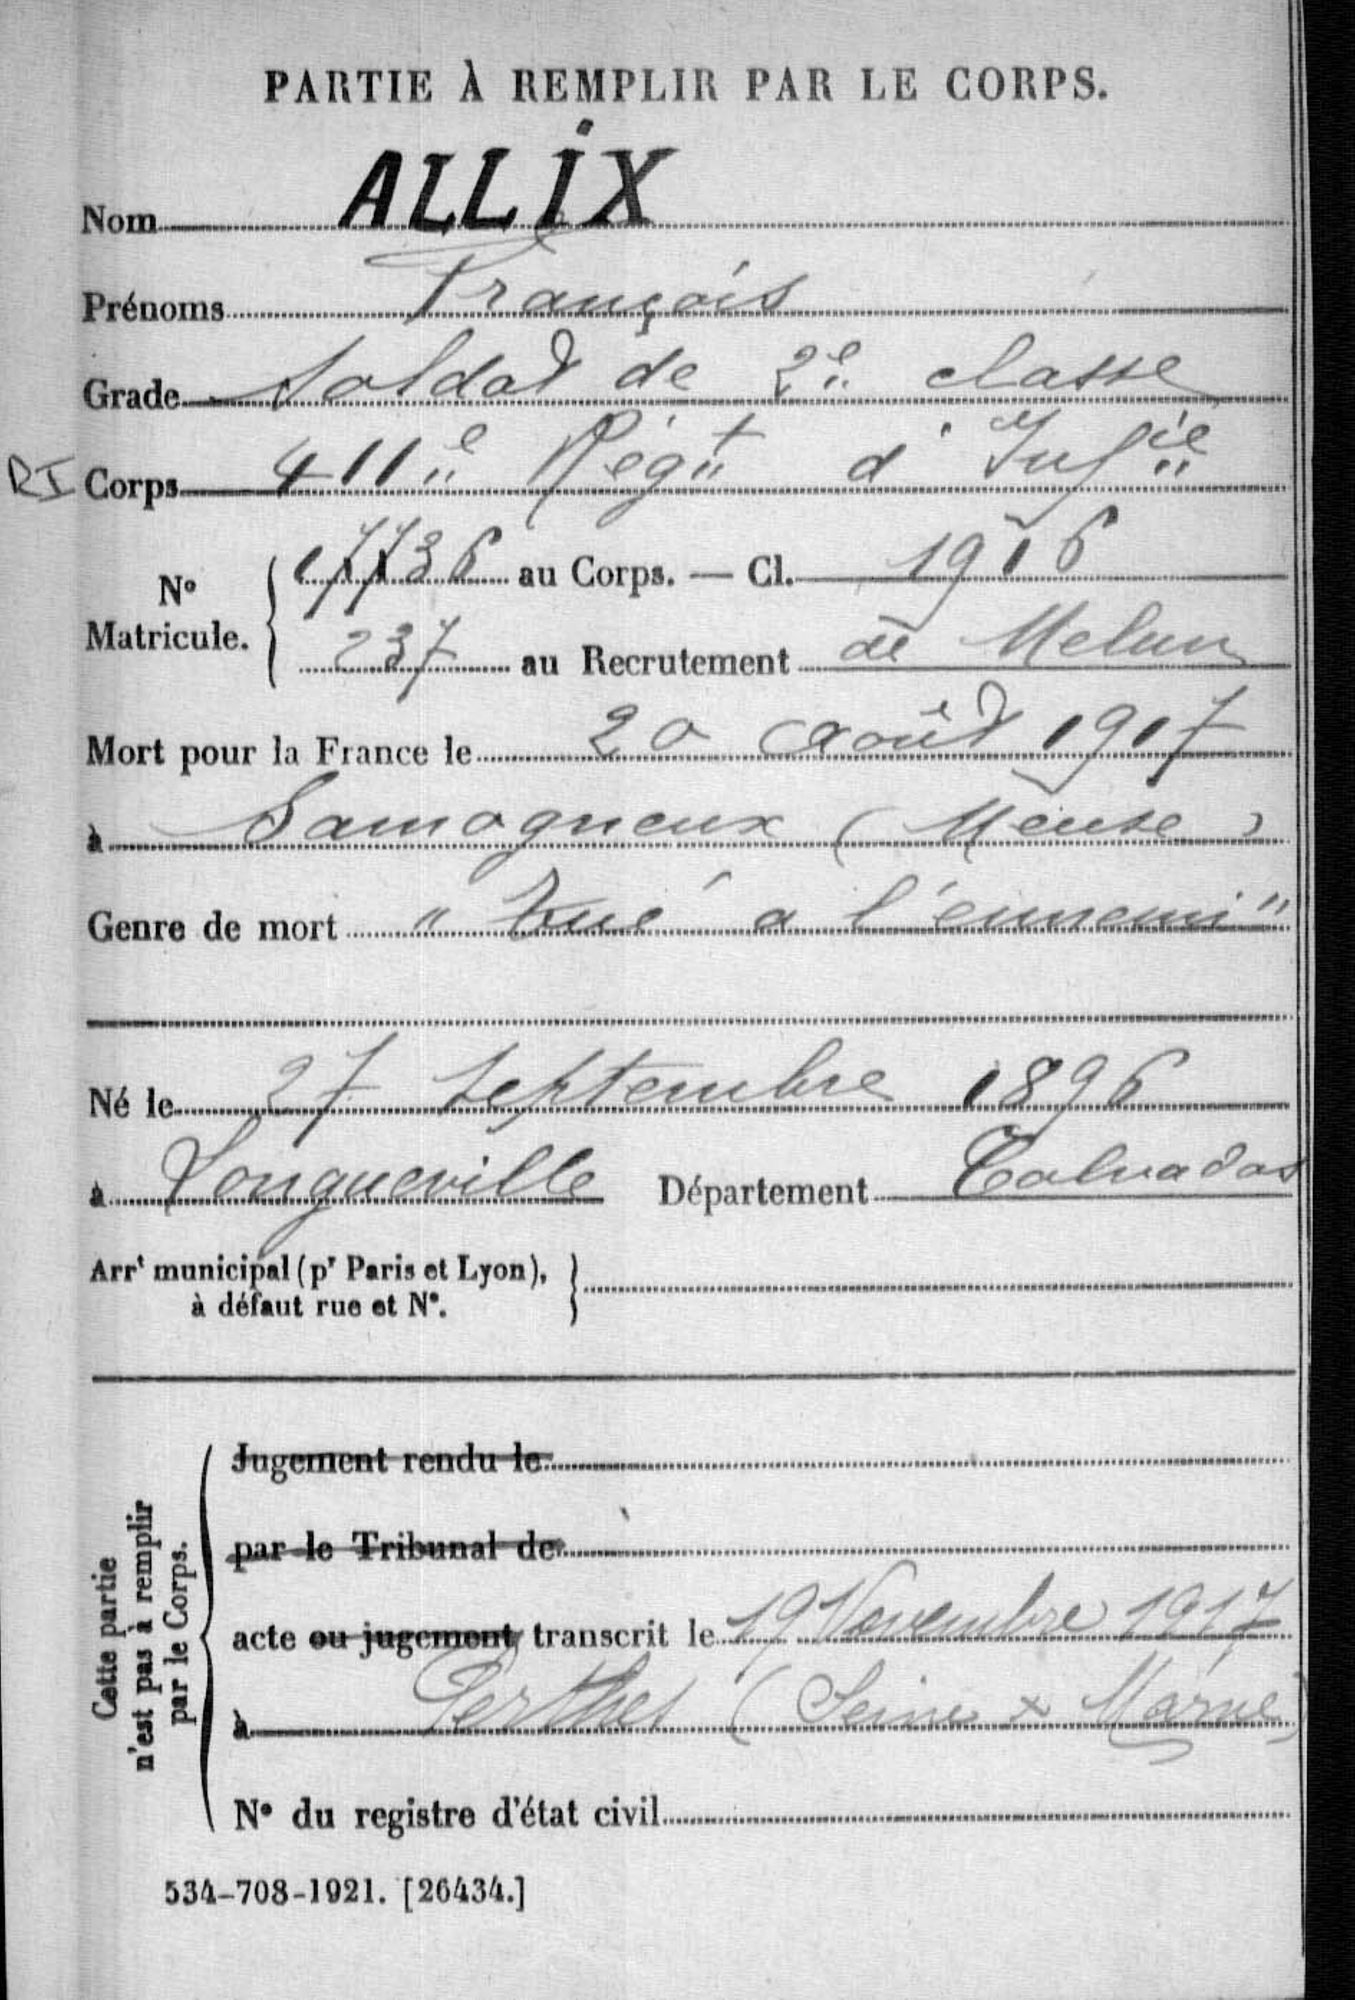 PARTIE À REMPLIR PAR LE CORPS.
Nom ALLIX
Prénoms François
Grade Soldat de 2e classe
RI Corps 411e Régt d'Infie
No Matricule. { 17736 au Corps. — Cl. 1916
237 au Recrutement de Melun
Mort pour la France le 20 août 1917
à Samogneux (Meuse)
Genre de mort "Tué à l'ennemi"
Né le 27 Septembre 1896
à Longueville Département Calvados
Arrt municipal (pr Paris et Lyon), }
à défaut rue et No.
Cette partie
n'est pas à remplir
par le Corps.
Jugement rendu le
par le Tribunal de
acte ou jugement transcrit le 19 Novembre 1917
à Perthes (Seine & Marne)
No du registre d'état civil
534-708-1921. [26434.]